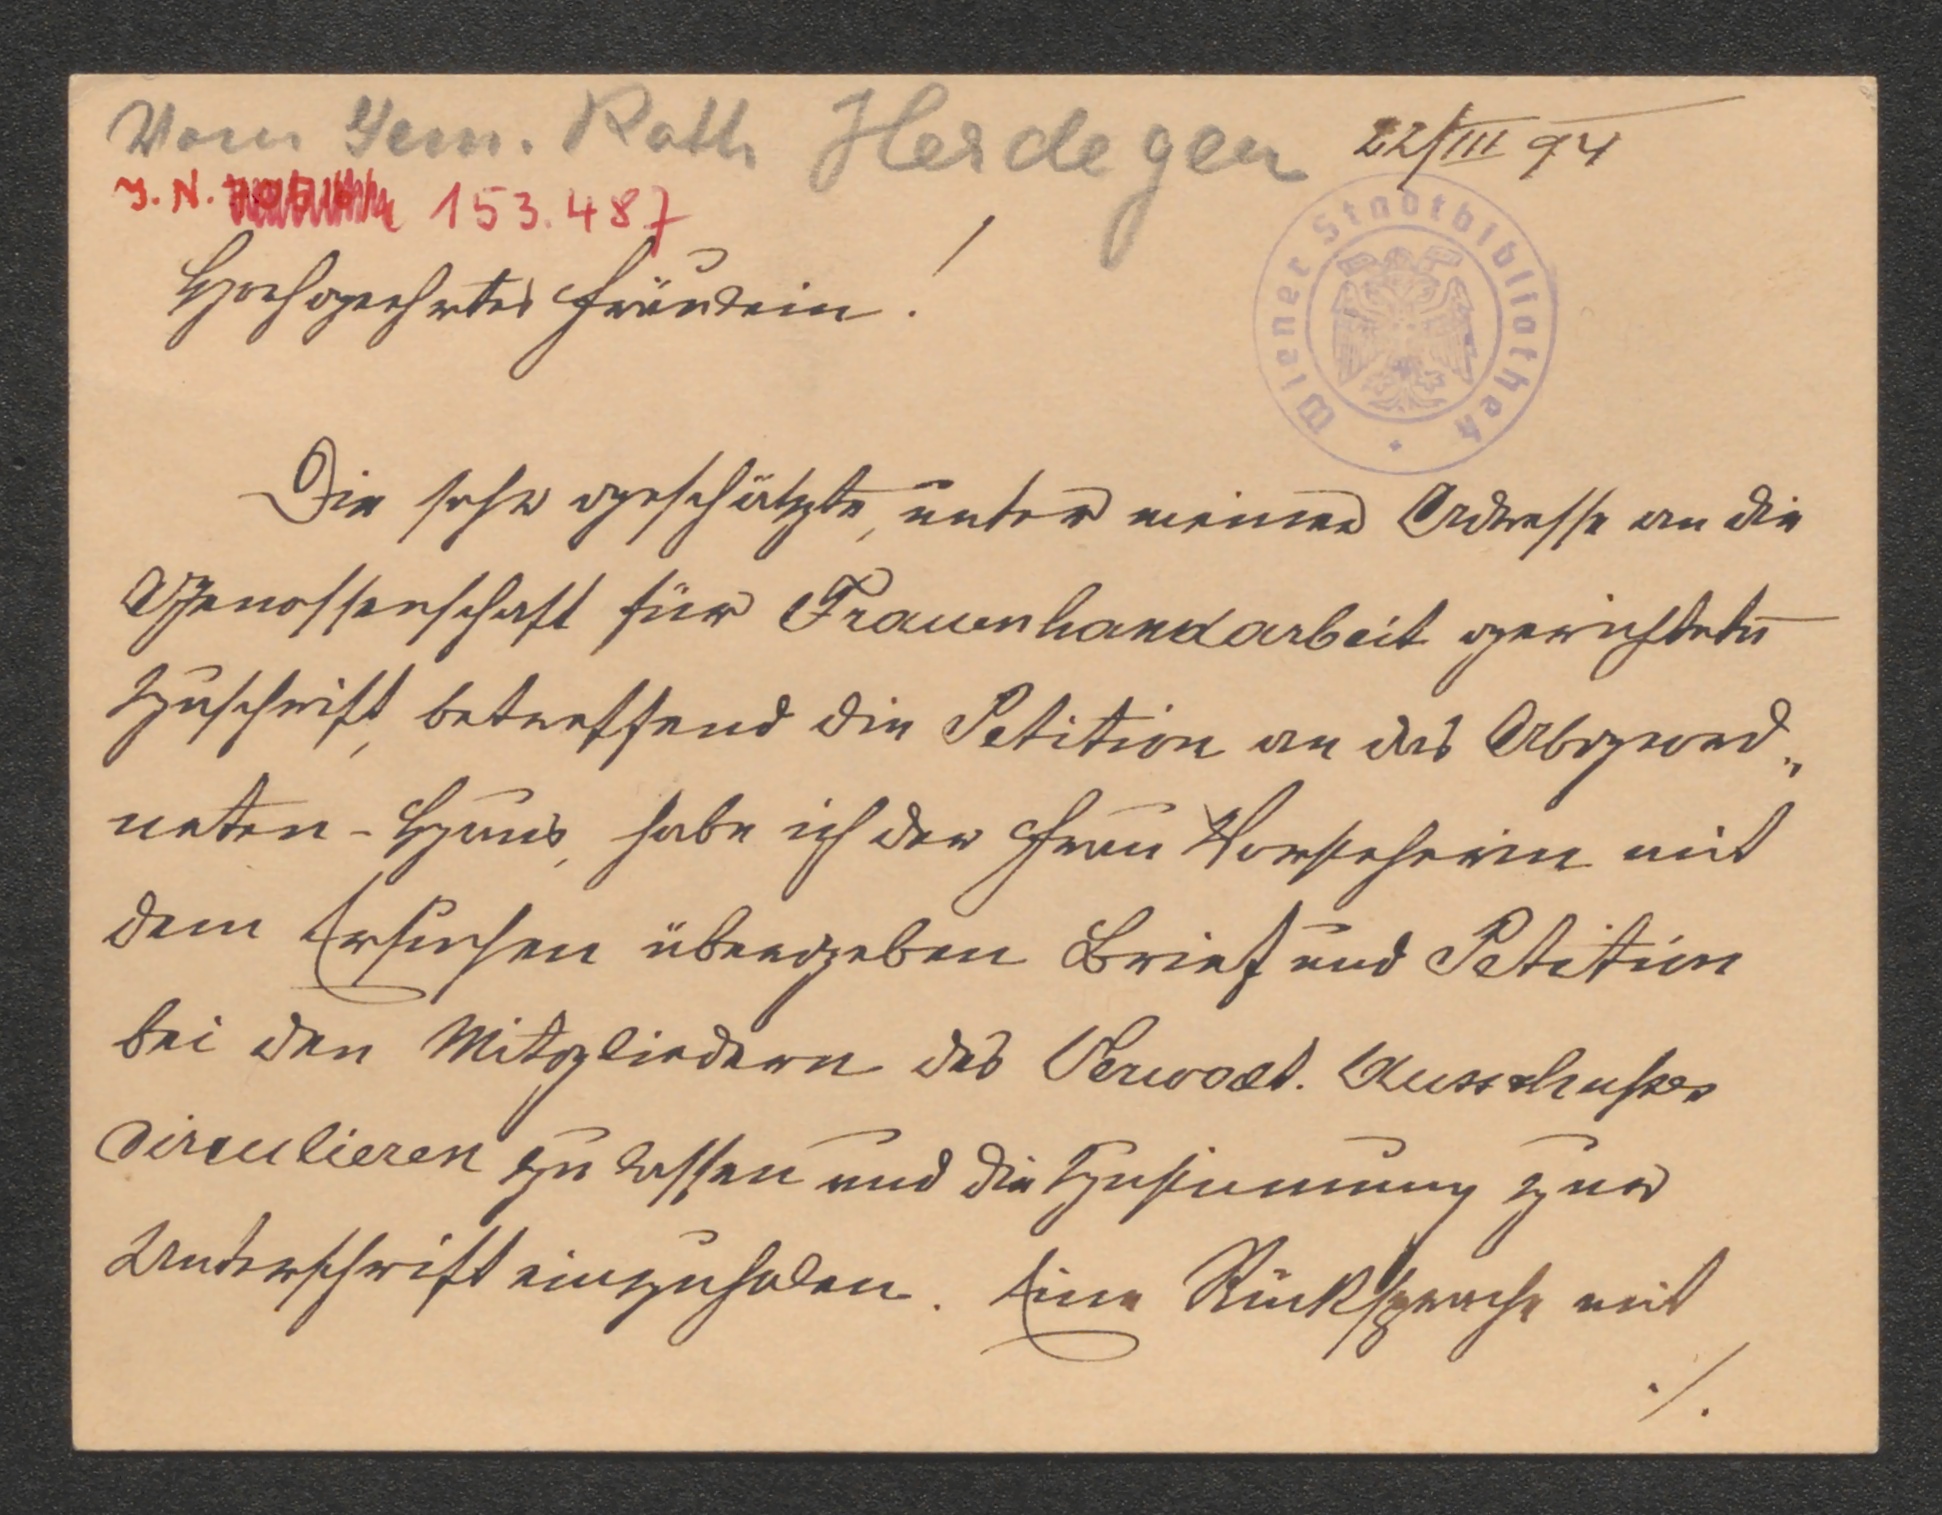 Vom Gem. Rath Herdegen 22/III 94
J. N. 153.487
Wiener Stadtbibliothek
Hochgeehrtes Fräulein!
Die sehr geschätzte, unter meiner Adresse an die
Genossenschaft für Frauenhandarbeit gerichtete
Zuschrift, betreffend die Petition an das Abgeord„
neten-Haus, habe ich der Frau Vorsteherin mit
dem Ersuchen übergeben Brief und Petition
bei den Mitgliedern des Verwalt. Ausschußes
circulieren zu lassen und die Zustimmung zur
Unterschrift einzuholen. Eine Rücksprache mit
./.